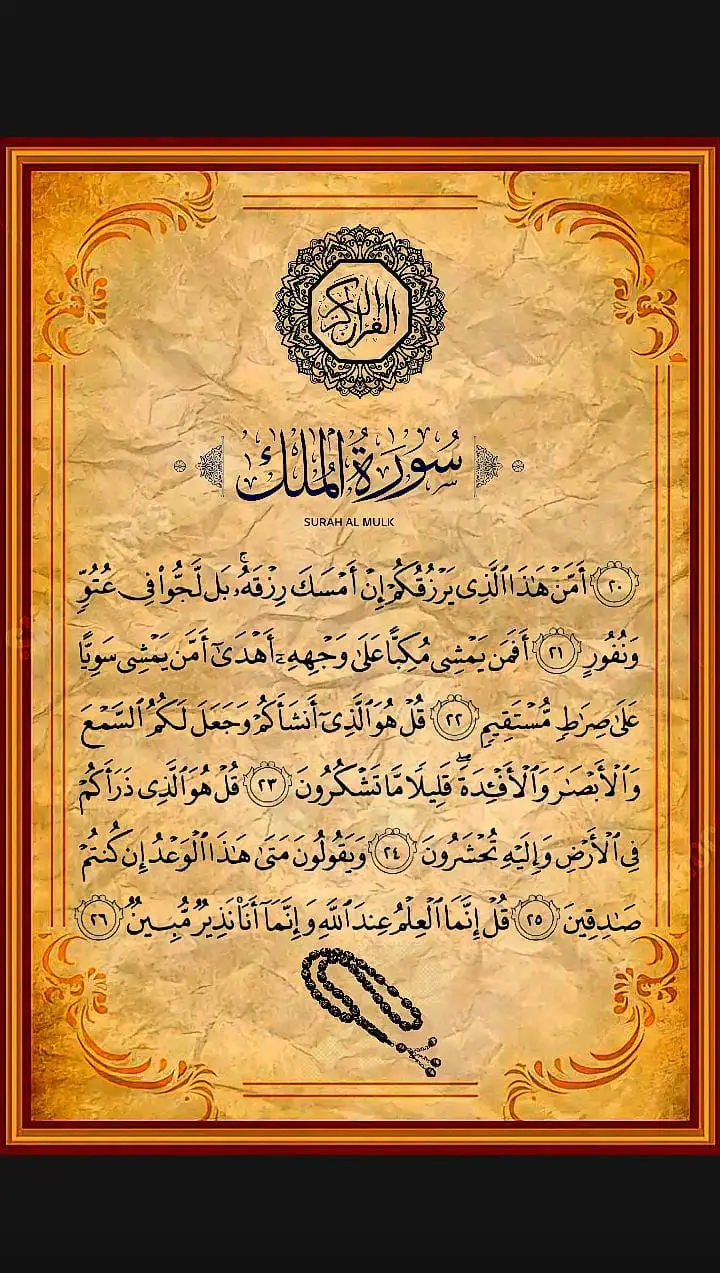 القرآن الكريم
سُورَةُ الْمُلْكِ
SURAH AL MULK
٢٠ أَمَّنْ هَٰذَا ٱلَّذِى يَرْزُقُكُمْ إِنْ أَمْسَكَ رِزْقَهُۥ ۚ بَل لَّجُّوا۟ فِى عُتُوٍّ
وَنُفُورٍ ٢١ أَفَمَن يَمْشِى مُكِبًّا عَلَىٰ وَجْهِهِۦٓ أَهْدَىٰٓ أَمَّن يَمْشِى سَوِيًّا
عَلَىٰ صِرَٰطٍ مُّسْتَقِيمٍ ٢٢ قُلْ هُوَ ٱلَّذِىٓ أَنشَأَكُمْ وَجَعَلَ لَكُمُ ٱلسَّمْعَ
وَٱلْأَبْصَٰرَ وَٱلْأَفْـِٔدَةَ ۖ قَلِيلًا مَّا تَشْكُرُونَ ٢٣ قُلْ هُوَ ٱلَّذِى ذَرَأَكُمْ
فِى ٱلْأَرْضِ وَإِلَيْهِ تُحْشَرُونَ ٢٤ وَيَقُولُونَ مَتَىٰ هَٰذَا ٱلْوَعْدُ إِن كُنتُمْ
صَٰدِقِينَ ٢٥ قُلْ إِنَّمَا ٱلْعِلْمُ عِندَ ٱللَّهِ وَإِنَّمَآ أَنَا۠ نَذِيرٌ مُّبِينٌ ٢٦